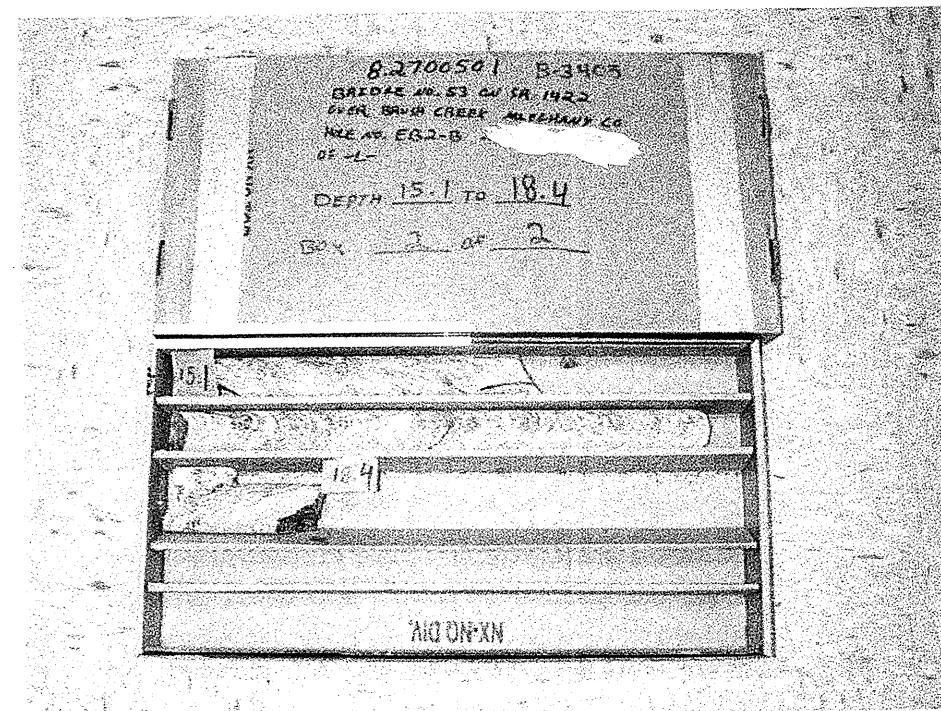 8.2700501 B-3403
BRIDGE NO. 53 ON SR 1422
OVER BRUSH CREEK ALLEGHANY CO
HOLE NO. EB2-B
OF -L-
DEPTH 15.1 TO 18.4
BOX OF 2
15.1
18.4
NX-NQ DIV.